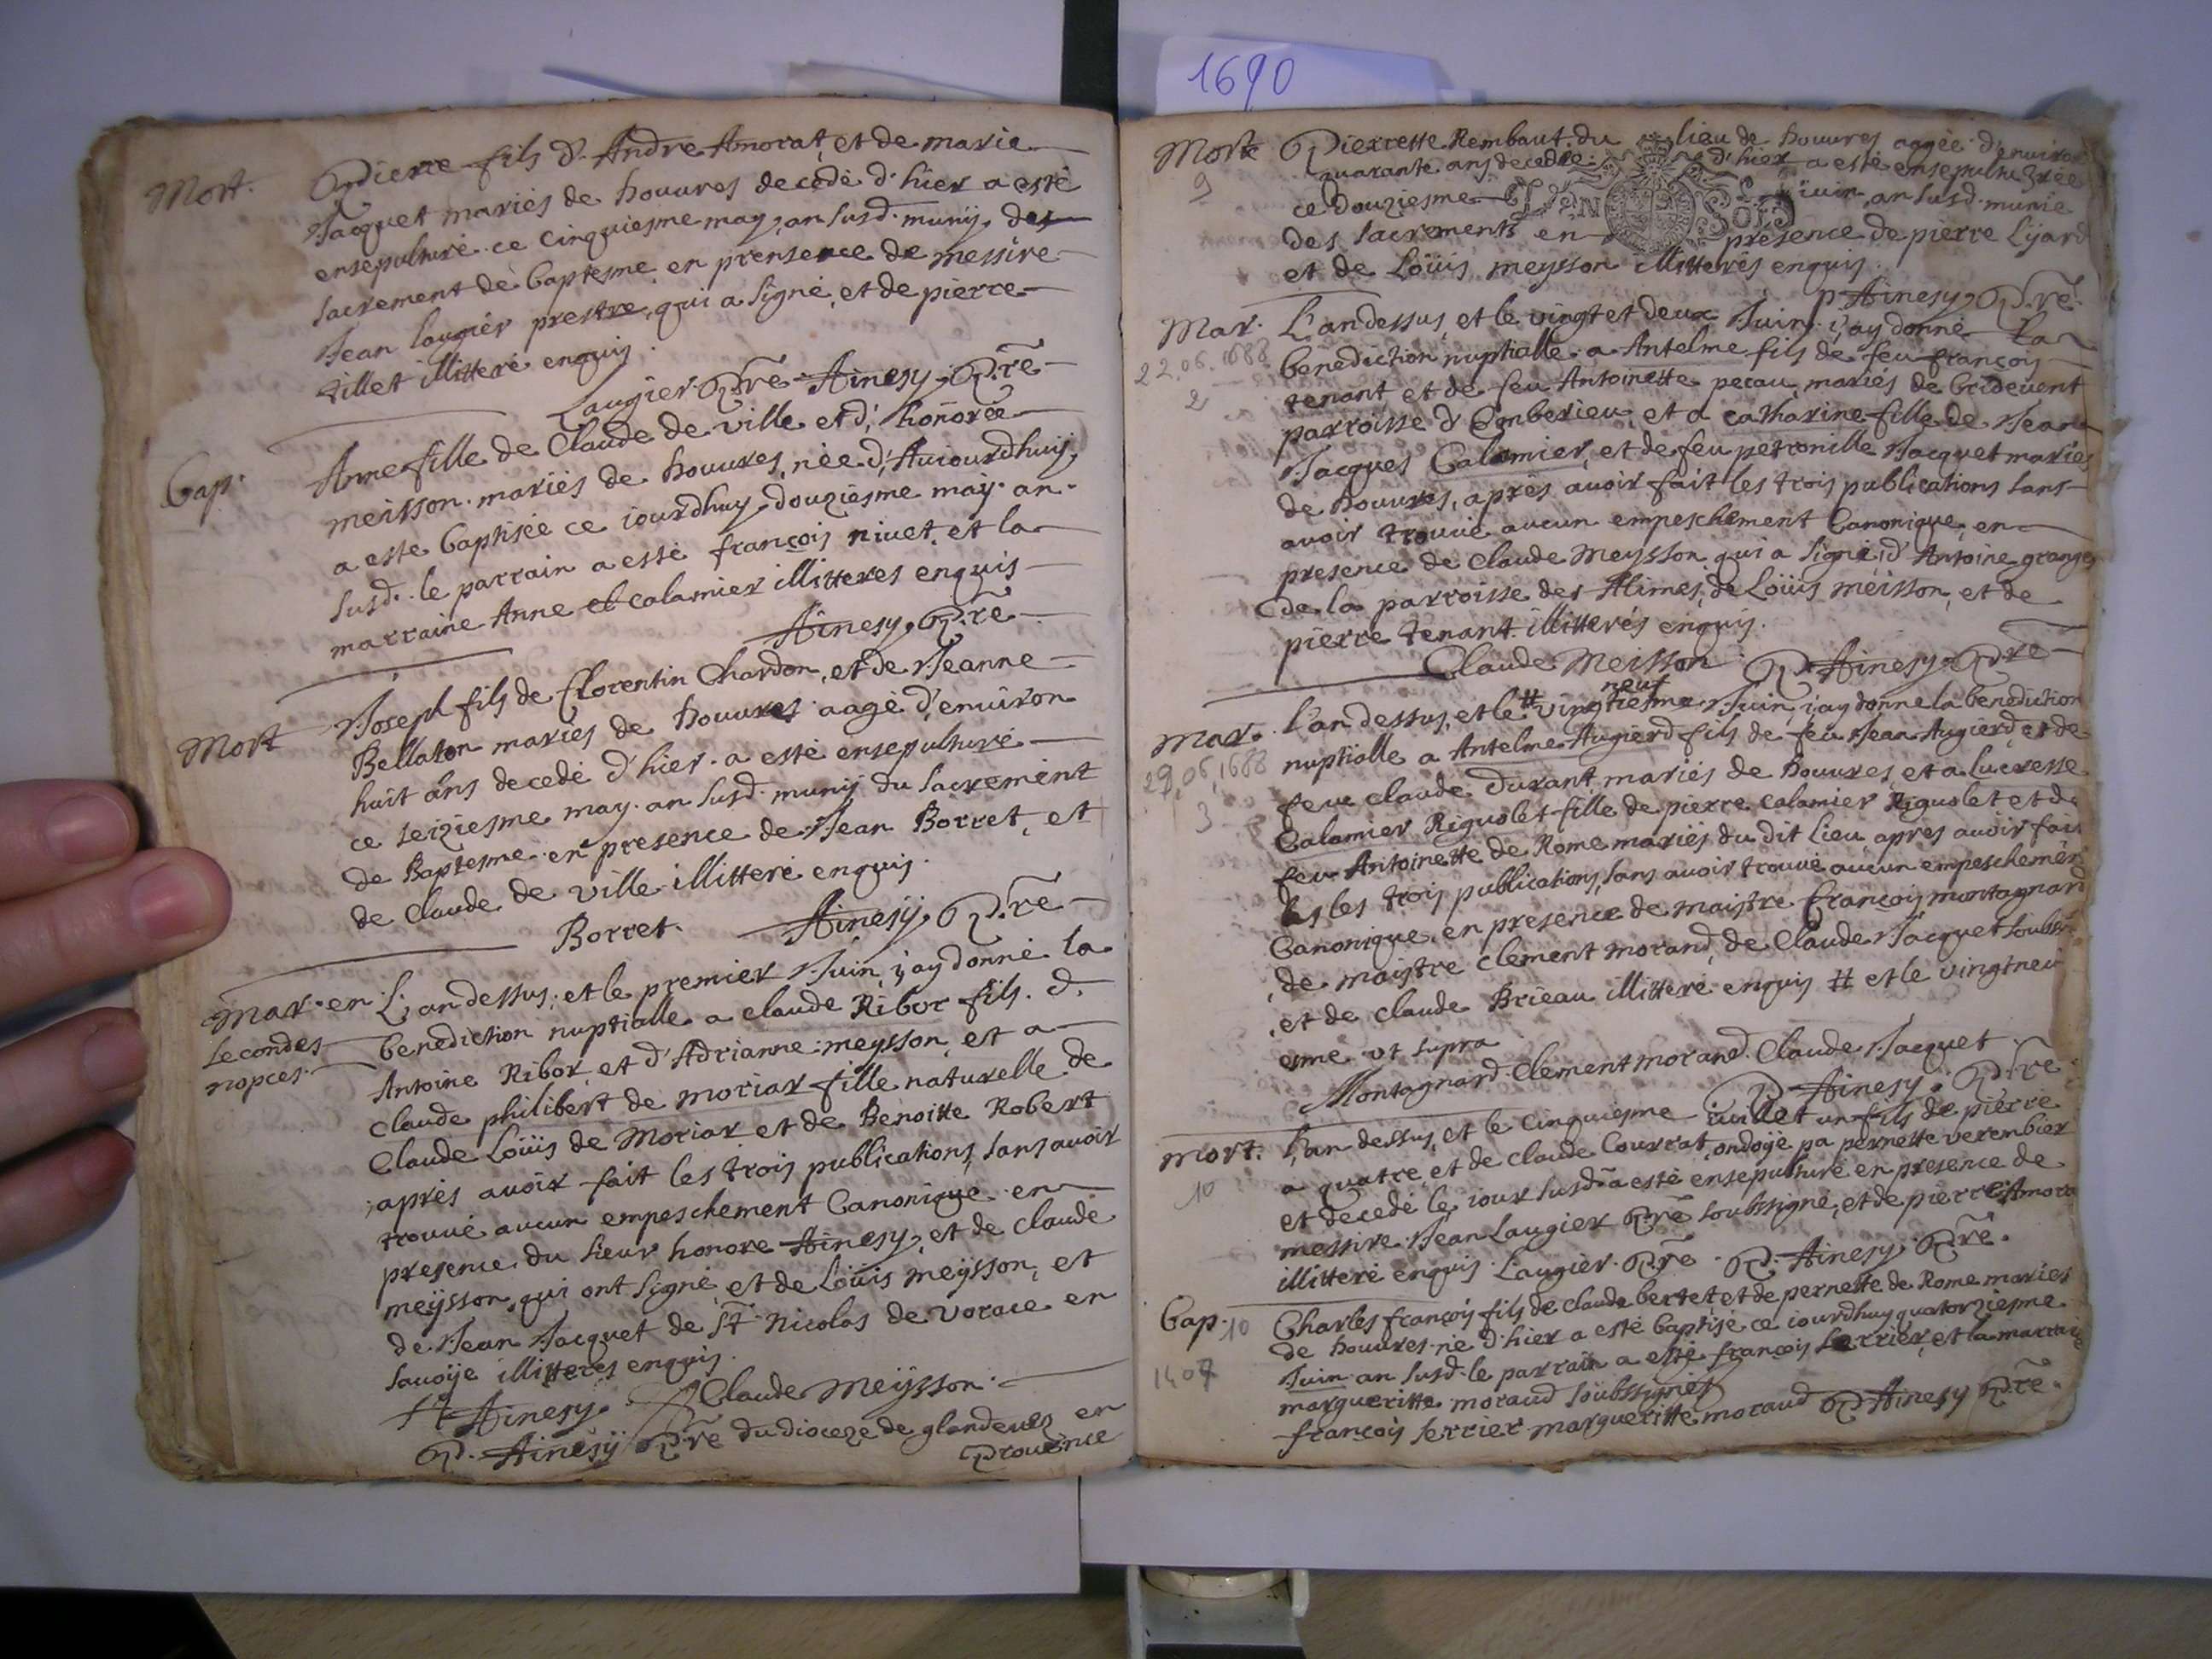 Mort. Pierre fils d'Andre Amorat, et de marie
Jacquet mariés de houures decedé d'hier a esté
ensepulturé ce cinquiesme may, an susd. munij des
sacrement de baptesme en prensence de messire
Jean laugier prestre, qui a signé, et de pierre
tillet illitteré enquis.
Laugier Pre Ainesy Pre
Bap. Anne fille de Claude de ville et d'honorée
meisson mariés de houures, née d'Auiourdhuij,
a esté baptisée ce iourdhuy douziesme may an
susd. le parrain a esté françois niuet, et la
marraine Anne el calamier illitteres enquis
Ainesy Pre
Mort Joseph fils de florentin Chardon, et de Jeanne
Bellaton mariés de houures aagé d'enuiron
huit ans decedé d'hier a esté ensepulturé
ce seiziesme may an susd. munij du sacrement
de Baptesme en presence de Jean Borret, et
de Claude de ville illitteré enquis.
Borret. Ainesÿ Pre
Mar. en secondes nopces. L'an dessus, et le premier Juin, i'ay donné la
benediction nuptialle a claude Ribor fils d'
Antoine Ribor, et d'Adrianne meysson, et a
claude philibert de moriar fille naturelle de
Claude Loüis de Moriar et de Benoitte Robert
apres auoir fait les trois publications, sans auoir
trouué aucun empeschement Canonique en
presence du sieur honore Ainesy, et de claude
meÿsson qui ont signé, et de Loüis meÿsson, et
de Jean Jacquet de St Nicolas de Vorace en
sauoÿe illitteres enquis.
H Ainesy. Claude Meÿsson.
P. Ainesÿ Pre du dioceze de glandeues en
Prouence
1690
Mort 9 Pierrette Rembaut du lieu de houures aagée d'enuiron
quarante ans decedée d'hier a esté ensepulturée
ce douziesme iuin, an susd. munie
des sacrements en présence de pierre Lÿard
et de Loüis meysson illitterés enquis.
P Ainesy Pre.
Mar. 22.06.1688 2 L'an dessus, et le vingt et deux Juin i'ay donné la
benediction nuptialle a Antelme fils de feu françois
tenant et de feu Antoinette pecau, mariés de bridevent
parroisse d'Emberieu, et a catharine fille de Jean
Jacques Calamier, et de feu petronille Jacquet mariés
de houures, après auoir fait les trois publications sans
auoir trouué aucun empeschement Canonique, en
presence de Claude Meysson qui a signé, d'Antoine grange
de la parroisse des Alimes, de Loüis meisson, et de
pierre tenant illitterés enquis.
Claude Meisson P. Ainesy Pre
Mar. 29.06.1688 3 L'an dessus, et le # vingtiesme neuf Juin, i'ay donné la benediction
nuptialle a Antelme Augierd fils de feu Jean Augierd, et de
feue claude Durant mariés de houures, et a lucresse
Calamier Riguolet fille de pierre calamier Riguolet et de
feu Antoinette de Rome mariés du dit Lieu, apres auoir fait
les les trois publications, sans auoir trouué aucun empeschement
Canonique, en presence de maistre françois montagnard
de maistre clement morand, de Claude Jacquet soubsi
et de claude Brieau illitteré enquis # et le vingtneu
esme vt supra
Montagnard Clement morand Claude Jacquet
P Ainesy Pre
Mort. 10 L'an dessus, et le cinquiesme iuillet un fils de pierre
a quatre, et de claude Courrat, ondoÿé pa pernette verembier
et decedé le iour susd. a esté ensepulturé en presence de
messire Jean Laugier Pre soubssigné, et de pierre Amora
illitteré enquis. Laugier Pre P. Ainesy Pre.
Bap. 10 1407 Charles françois fils de claude bertet, et de pernette de Rome mariés
de houures né d'hier a esté baptisé ce iourdhuy quatorziesme
Juin an susd. le parrain a esté françois serrier, et la marrai
margueritte moraud soubssignés
françois serrier margueritte moraud P Ainesy Pre.